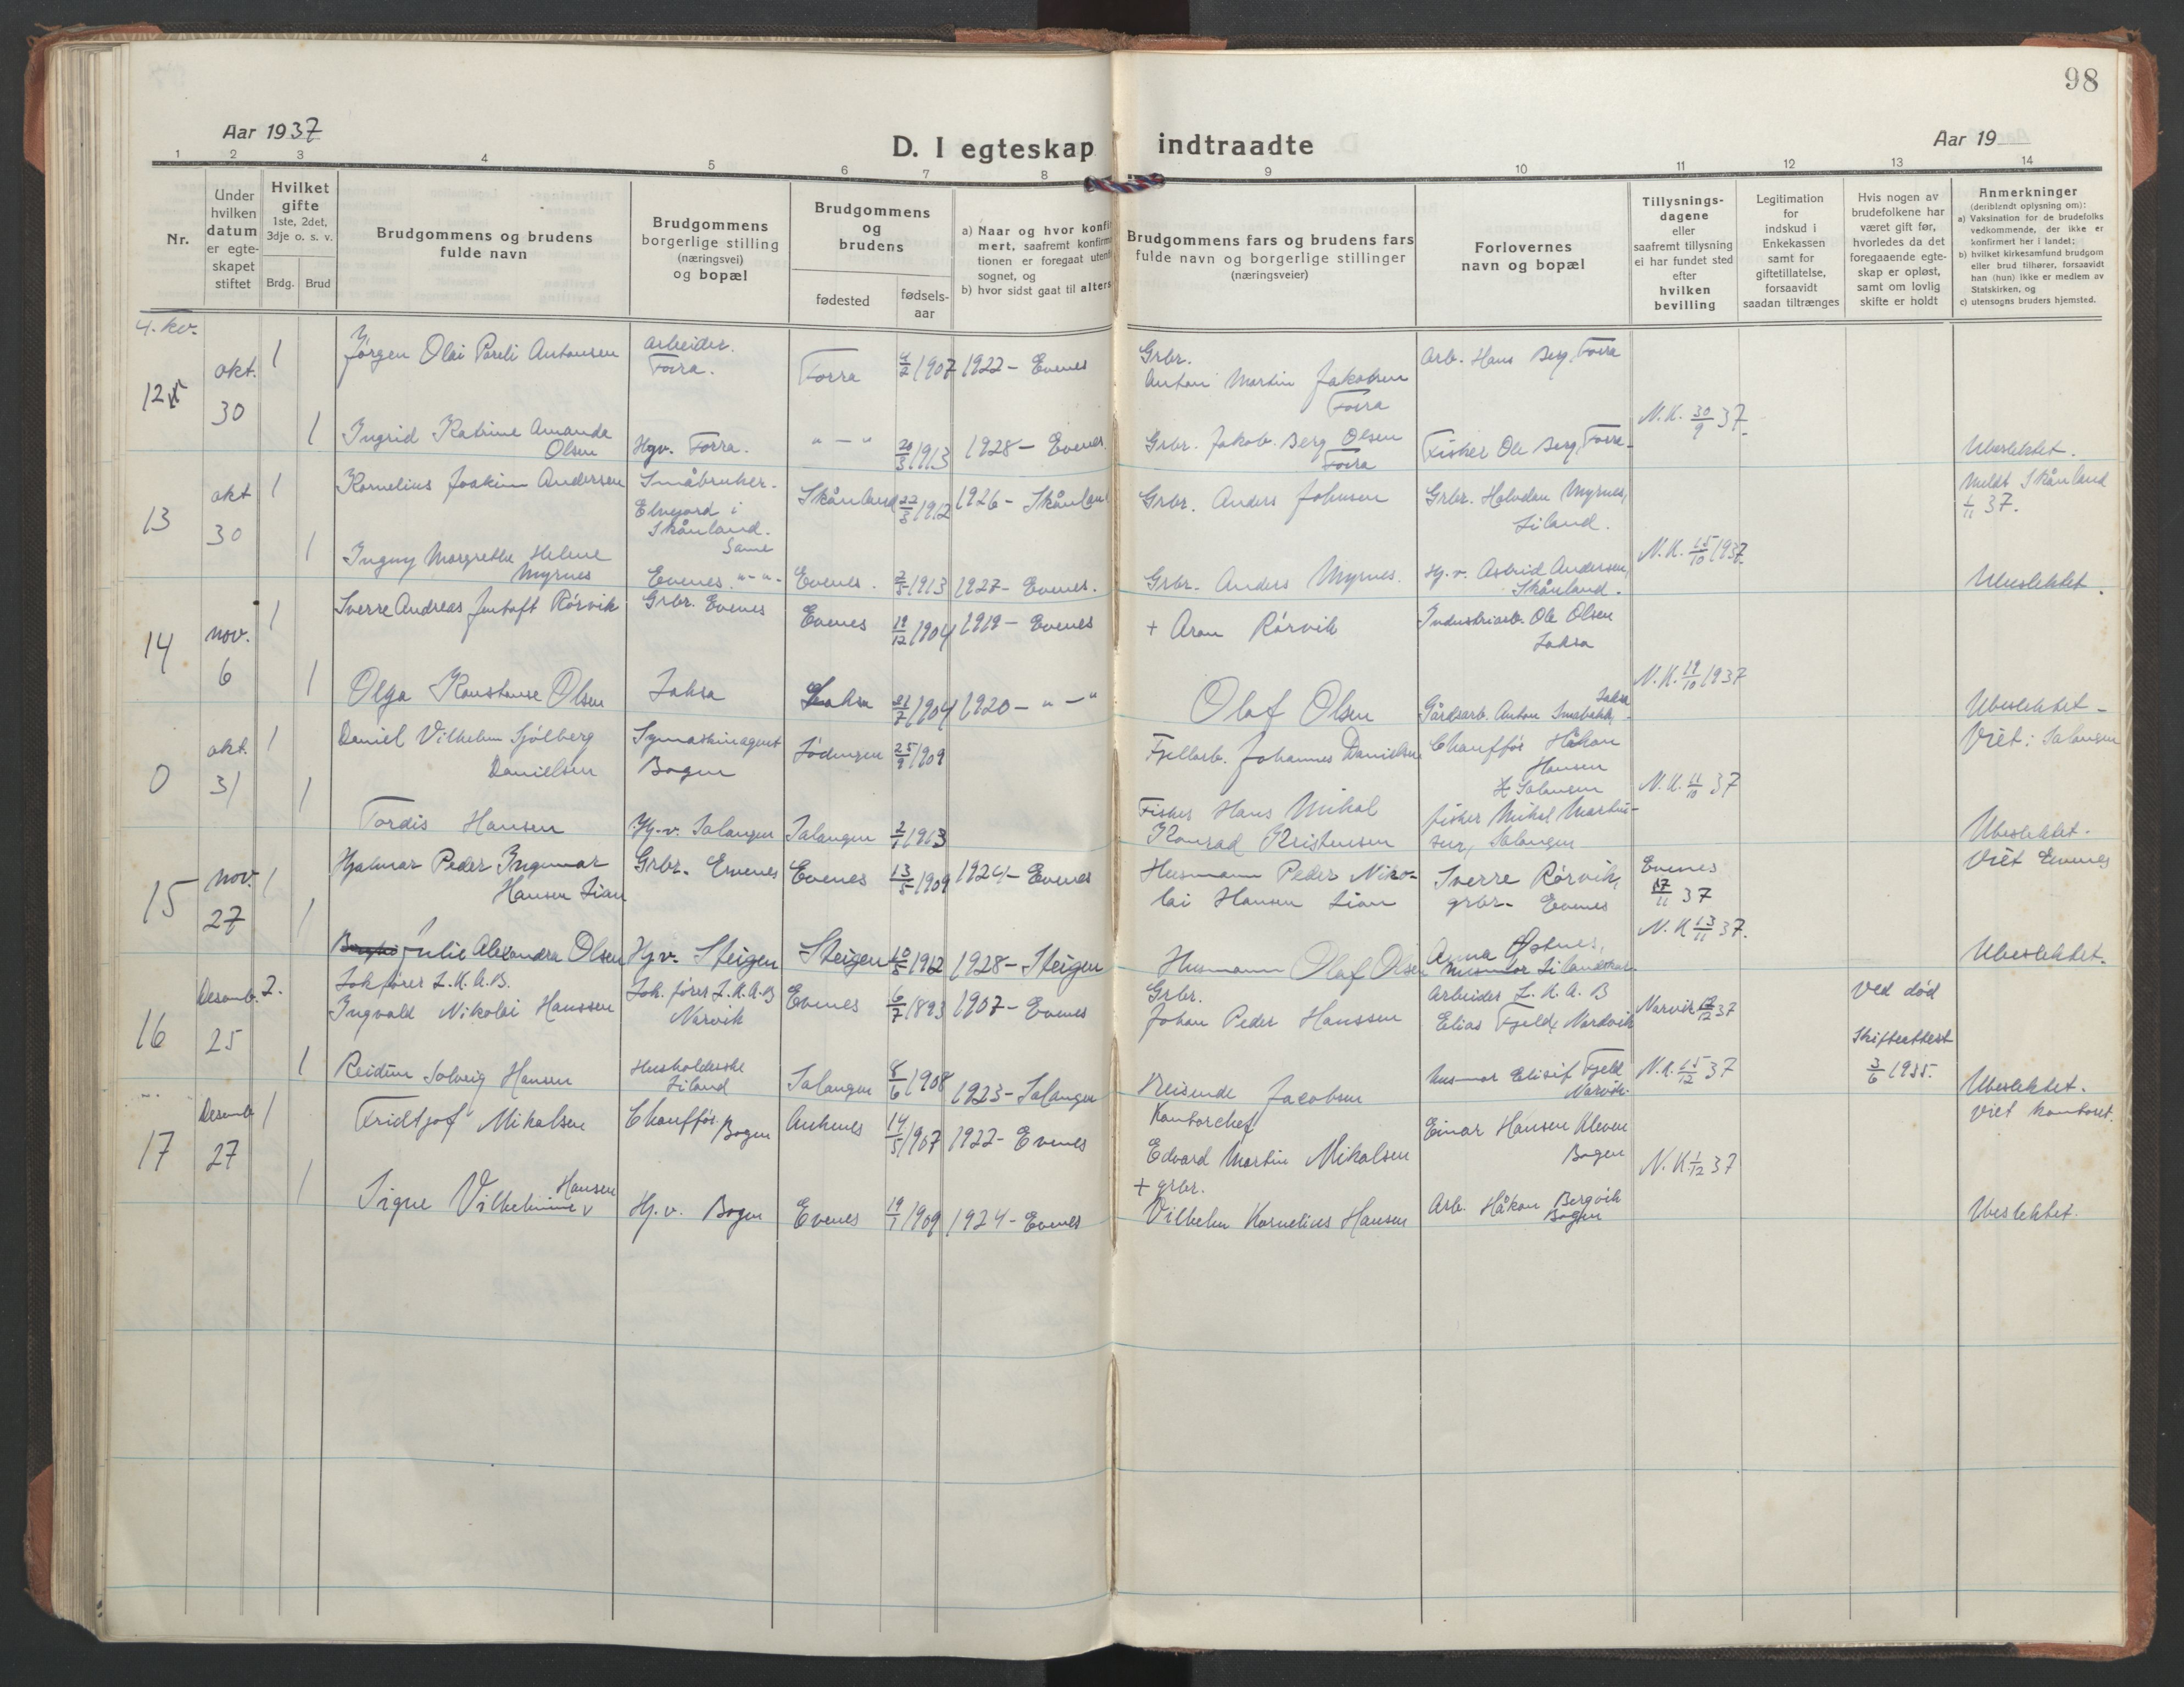 98
Aar 1937
D. I egteskap indtraadte
Aar 19
1 2 3 4 5 6 7 8 9 10 11 12 13 14
Nr.
Under
hvilken
datum
er egte-
skapet
stiftet
Hvilket
gifte
1ste, 2det,
3dje o. s. v.
Brdg. Brud
Brudgommens og brudens
fulde navn
Brudgommens
borgerlige stilling
(næringsvei)
og bopæl
Brudgommens
og
brudens
fødested
fødsels-
aar
a) Naar og hvor konfir
mert, saafremt konfirma
tionen er foregaat utenf
sognet, og
b) hvor sidst gaat til alters
Brudgommens fars og brudens fars
fulde navn og borgerlige stillinger
(næringsveier)
Forlovernes
navn og bopæl
Tillysnings-
dagene
eller
saafremt tillysning
ei har fundet sted
efter
hvilken
bevilling
Legitimation
for
indskud i
Enkekassen
samt for
giftetillatelse,
forsaavidt
saadan tiltrænges
Hvis nogen av
brudefolkene har
været gift før,
hvorledes da det
foregaaende egte-
skap er opløst,
samt om lovlig
skifte er holdt
Anmerkninger
(deriblandt oplysning om):
a) Vaksination for de brudefolks
vedkommende, der ikke er
konfirmert her i landet;
b) hvilket kirkesamfund brudgom
eller brud tilhører, forsaavidt
han (hun) ikke er medlem av
Statskirken, og
c) utensogns bruders hjemsted.
4. kv.
12 okt. 30
1 Jørgen Olai Pareli Antonsen
arbeider.
Forra.
Forra 4/2 1907 1922 - Evenes
Grbr.
Anton Martin Jakobsen
Forra
Arb. Hans Berg, Forra
N.K. 30/9 37.
1 Ingrid Katrine Amanda
Olsen
Hgv. Forra.
" - " 20/3 1913 1928 - Evenes
Grbr. Jakob Berg Olsen
Forra
Fisker Ole Berg, Forra
Ubeslektet.
13 okt 30
1 Kornelius Joakim Andersen
Småbruker.
Elvejord i
Skånland.
Skånland 22/3 1912 1926 - Skånland
Grbr. Anders Johnsen
Grbr. Halvdan Myrnes,
Liland.
Meldt Skånland
1/11 37.
N.K. 15/10 1937.
1 Ingny Margrethe Helene
Myrnes
Same
Evenes. "-"-
Evenes. 2/5 1913 1927 - Evenes.
Grbr. Anders Myrnes.
Hj.v. Astrid Andersen,
Skånland.
Ubeslektet.
14 nov. 6
1 Sverre Andreas Jentoft Rørvik
Grbr. Evenes
Evenes 19/12 1904 1919 - Evenes
+ Aron Rørvik
Industriarb. Ole Olsen
Laksa
N.K. 19/10 1937
1 Olga Konstanse Olsen
Laksa
Laksa 21/7 1904 1920 - " - "
Olaf Olsen
Laksa
Gårdsarb. Anton Småbakk,
Ubeslektet -
0 okt. 31
1 Daniel Vilhelm Sjölberg
Danielsen
Symaskinagent
Bogen
Lødingen 25/9 1909
Fjellarb. Johannes Danielsen
Chauffør Håkon
Hansen
Salangen
N.K. 11/10 37
Viet: Salangen
1 Tordis Hansen
Hj.-v. Salangen
Salangen 2/1 1913
Fisker Hans Mikal
Konrad Kristensen
fisker Mikal Martin-
sen, Salangen
Ubeslektet.
15 nov. 27
1 Hjalmar Peder Ingemar
Hansen Lian
Grbr. Evenes
Evenes 13/5 1909 1924 - Evenes
Husmann Peder Niko-
lai Hansen Lian
Sverre Rørvik,
grbr. Evenes
Evenes
17/11 37
N.K. 13/11 37.
Viet Evenes
1 Julie Alexandra Olsen
Hj.v. Steigen
Steigen 10/8 1912 1928 - Steigen
Husmann Olaf Olsen
Anna Østnes,
husmor
Ubeslektet.
16 Desemb. 25
2. Lok.fører L.K.A.B.
Ingvald Nikolai Hanssen
Lok. fører L.K.A.B
Narvik
Evenes 6/7 1893 1907 - Evenes
Grbr.
Johan Peder Hanssen
Arbeider L.K.A.B
Elias Fjeld, Nardvik
Narvik 12/12 37
Ved død
Skifteattest
3/6 1935.
1 Reidun Solveig Hansen
Husholderske
Liland
Salangen 8/6 1908 1923 - Salangen
Reisende Jacobsen
husmor Elisif Fjeld
Narvik.
N.K. 15/12 37
Ubeslektet.
17 Desemb 27
1 Fridtjof Mikalsen
Chauffør. Bogen
Ankenes 14/5 1907 1922 - Evenes
Kontorchef
Edvard Martin Mikalsen
Einar Hansen Kleven
Bogen
N.K. 1/12 37
viet kontoret.
1 Signe Vilhelmine Hansen
Hj.v. Bogen
Evenes 19/1 1909 1924 - Evenes
+ grbr.
Vilhelm Kornelius Hansen
Arb. Håkon Bergvik
Bogen
Ubeslektet.